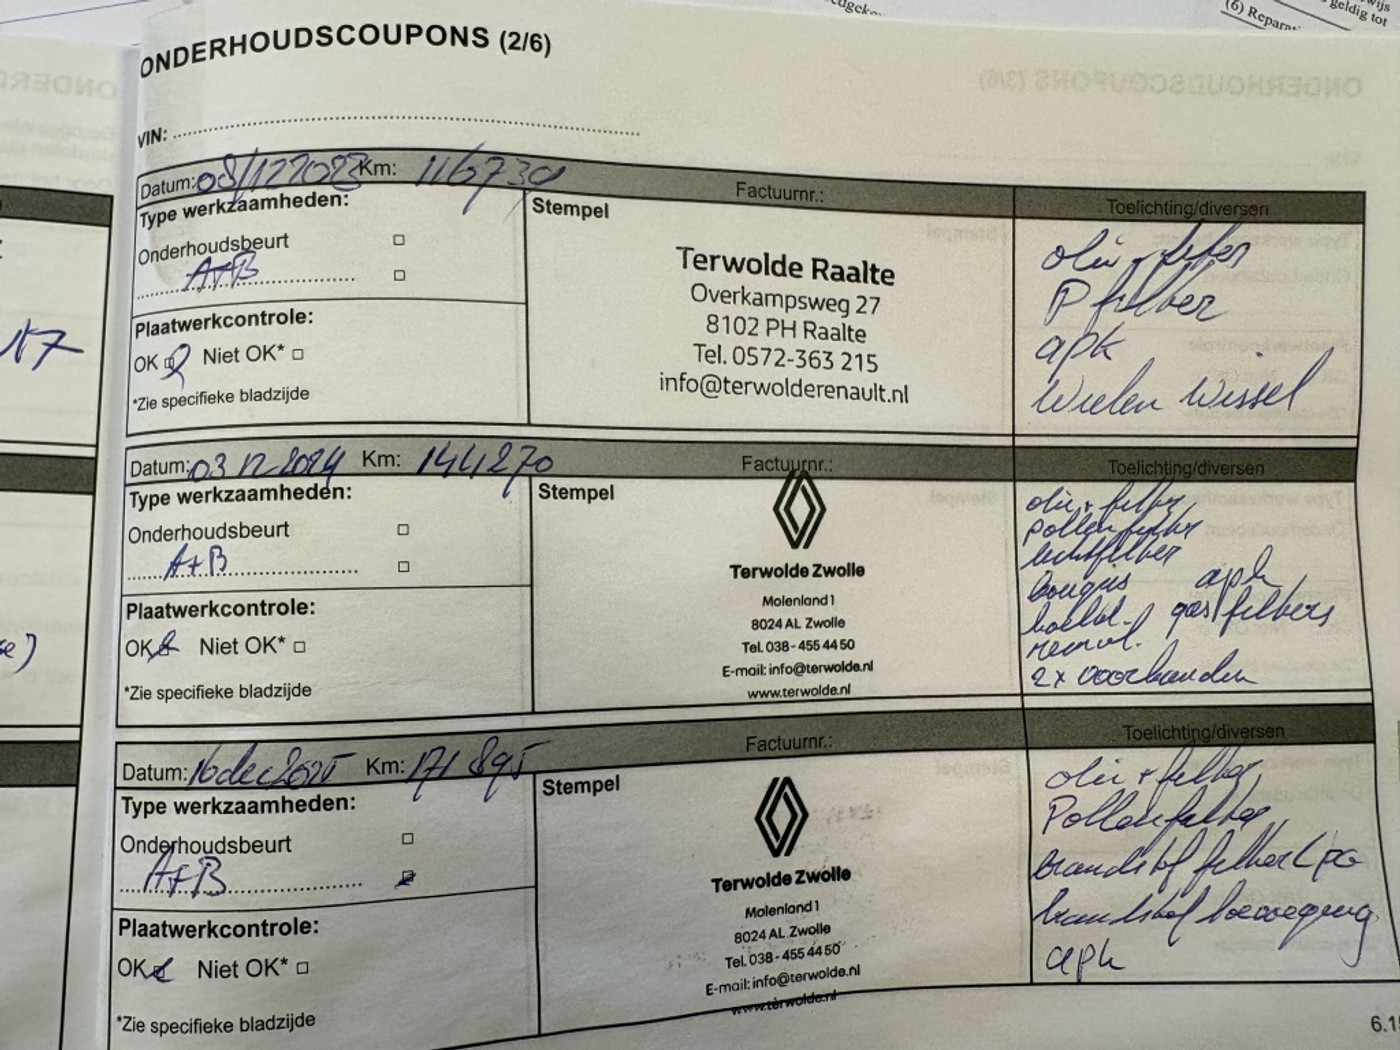 (6) Repara
geldig tot
ONDERHOUDSCOUPONS (2/6)
VIN:
Datum: 08/12 2023 Km: 116730
Factuurnr.:
Toelichting/diversen
Type werkzaamheden:
Onderhoudsbeurt
A+B
Plaatwerkcontrole:
OK Niet OK*
*Zie specifieke bladzijde
Stempel
Terwolde Raalte
Overkampsweg 27
8102 PH Raalte
Tel. 0572-363 215
info@terwolderenault.nl
olie + filter
P filter
apk
Wielen Wissel
Datum: 03 12 2024 Km: 144270
Factuurnr.:
Toelichting/diversen
Type werkzaamheden:
Onderhoudsbeurt
A+B
Plaatwerkcontrole:
OK Niet OK*
*Zie specifieke bladzijde
Stempel
Terwolde Zwolle
Molenland 1
8024 AL Zwolle
Tel. 038 - 455 44 50
E-mail: info@terwolde.nl
www.terwolde.nl
olie + filter
pollenfilter
luchtfilter
bougies apk
gasfilters
remvl.
2x voorbanden
Datum: 16 dec 2025 Km: 171 895
Factuurnr.:
Toelichting/diversen
Type werkzaamheden:
Onderhoudsbeurt
A+B
Plaatwerkcontrole:
OK Niet OK*
*Zie specifieke bladzijde
Stempel
Terwolde Zwolle
Molenland 1
8024 AL Zwolle
Tel. 038 - 455 44 50
E-mail: info@terwolde.nl
www.terwolde.nl
olie + filter
Pollenfilter
brandstof filter LPG
brandstof toevoeging
apk
6.1